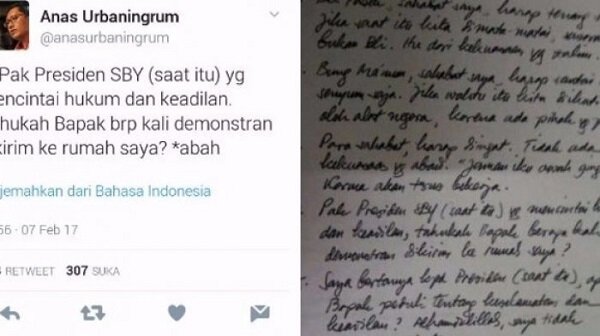 Anas Urbaningrum
@anasurbaningrum
Pak Presiden SBY (saat itu) yg
encintai hukum dan keadilan.
hukah Bapak brp kali demonstran
irim ke rumah saya? *abah
jemahkan dari Bahasa Indonesia
56 - 07 Feb 17
RETWEET 307 SUKA
sahabat saya, harap tenang
Jika saat itu kita dimata-matai,
bukan Eli. Itu dari kekuasaan yg zalim.
sahabat saya, harap santai
senyum saja. Jika waktu itu kita
oleh alat negara, karena ada pihak yg
Para sahabat, harap diingat. Tidak ada
kekuasaan yg abadi. "Jaman iku owah
Karma akan terus bekerja.
Pak Presiden SBY (saat itu) yg mencintai
dan keadilan, tahukah Bapak berapa kali
demonstran dikirim ke rumah saya?
Saya bertanya kpd Presiden (saat itu),
Bapak peduli tentang keselamatan dan
keadilan? saya tidak